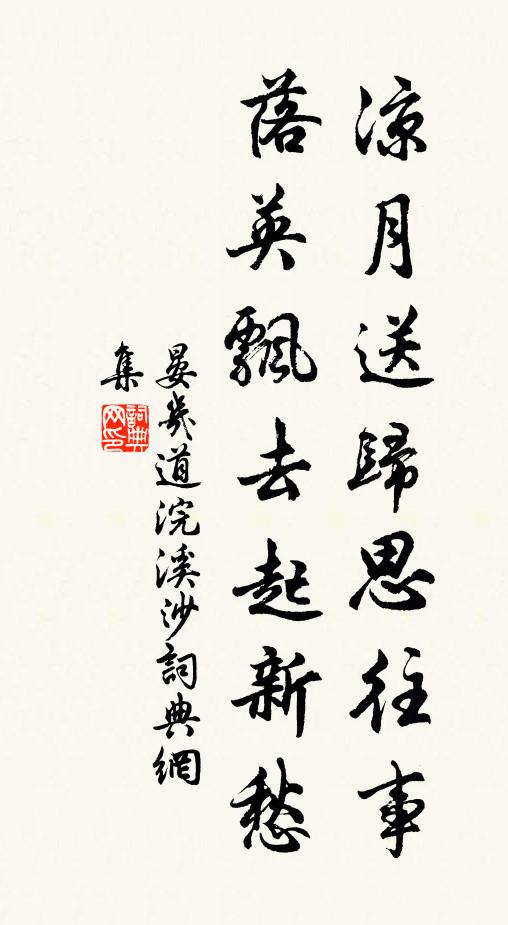 涼月送歸思往事
落英飄去起新愁
晏幾道浣溪沙詞典網
集
詞典網印